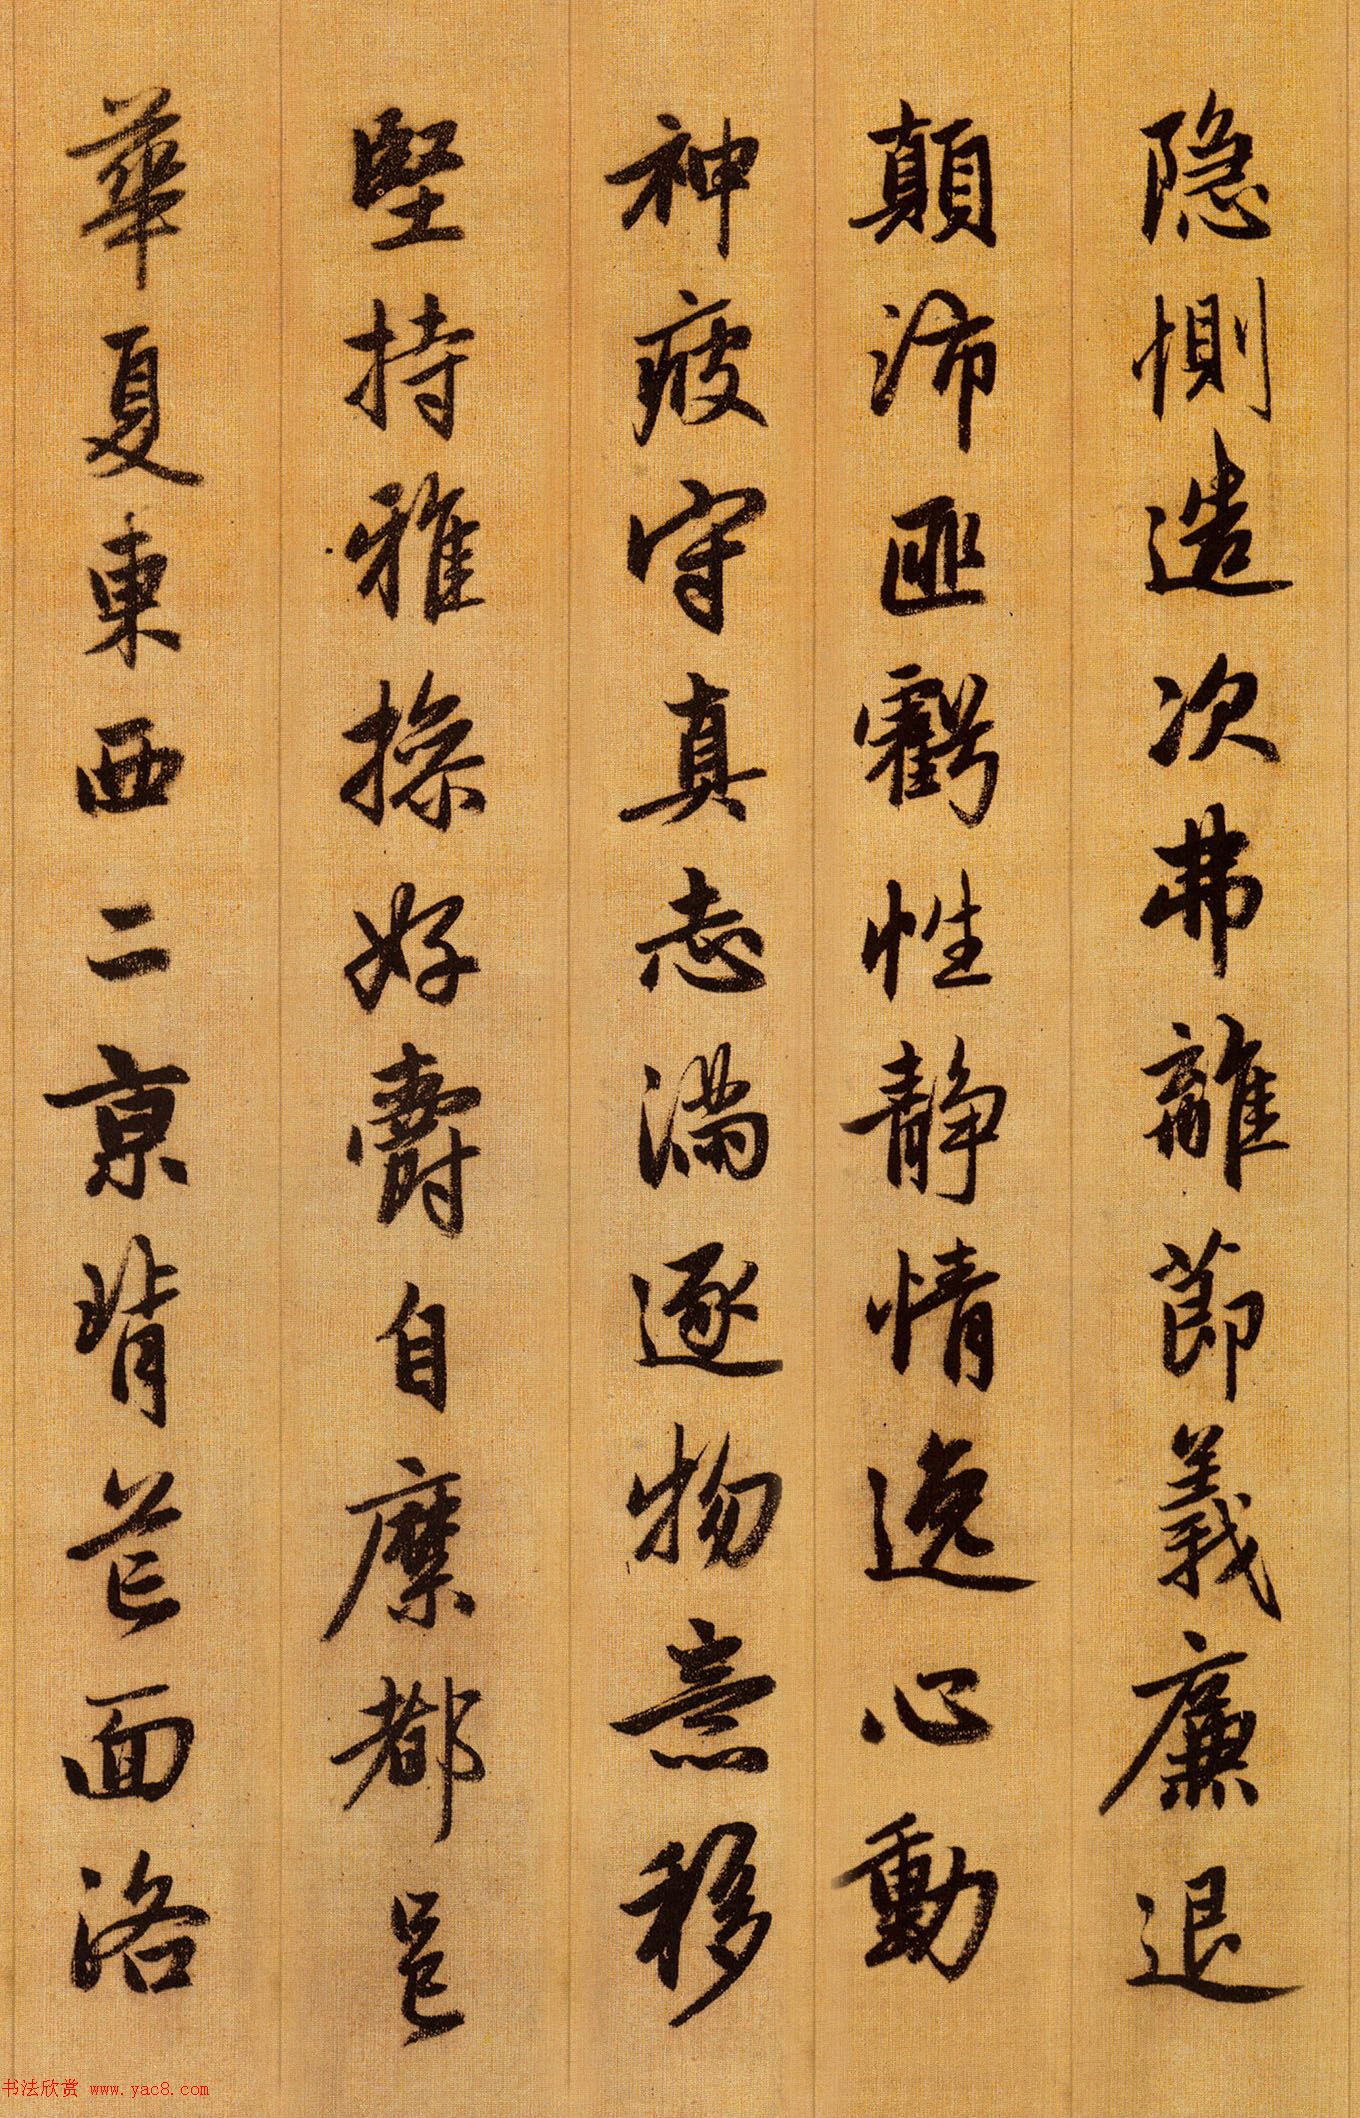 隐惻造次弗離節義廉退
顛沛匪虧性静情逸心動
神疲守真志滿逐物意移
堅持雅操好爵自縻都邑
華夏東西二京背芒面洛
书法欣赏 www.yac8.com